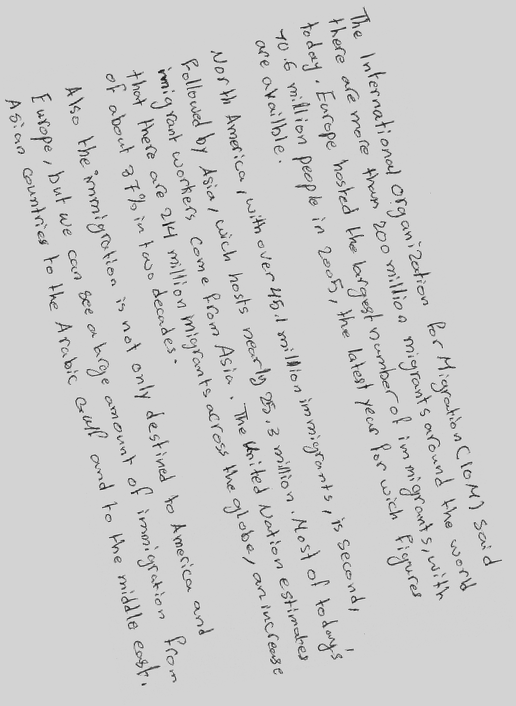 The International Organization for Migration (IOM) said
there are more than 200 million migrants around the world
today. Europe hosted the largest number of immigrants, with
70.6 million people in 2005, the latest year for wich figures
are availble.
North America, with over 45.1 million immigrants, is second,
followed by Asia, wich hosts nearly 25.3 million. Most of today's
imigrant workers come from Asia. The United Nation estimates
that there are 214 million migrants across the globe, an increase
of about 37% in two decades.
Also the immigration is not only destined to America and
Europe, but we can see a large amount of immigration from
Asian countries to the Arabic Gulf and to the middle east.